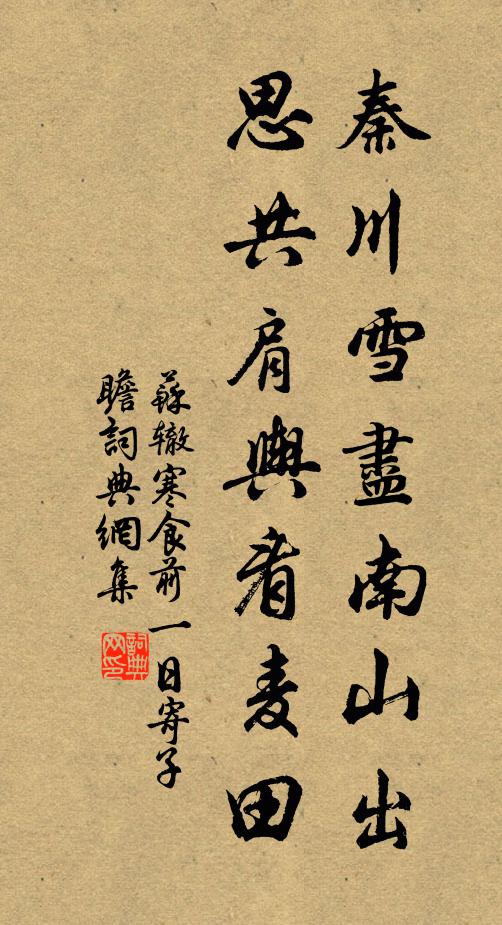 秦川雪盡南山出
思共肩輿看麦田
蘇辙寒食前一日寄子
瞻詞典網集
詞典
网印